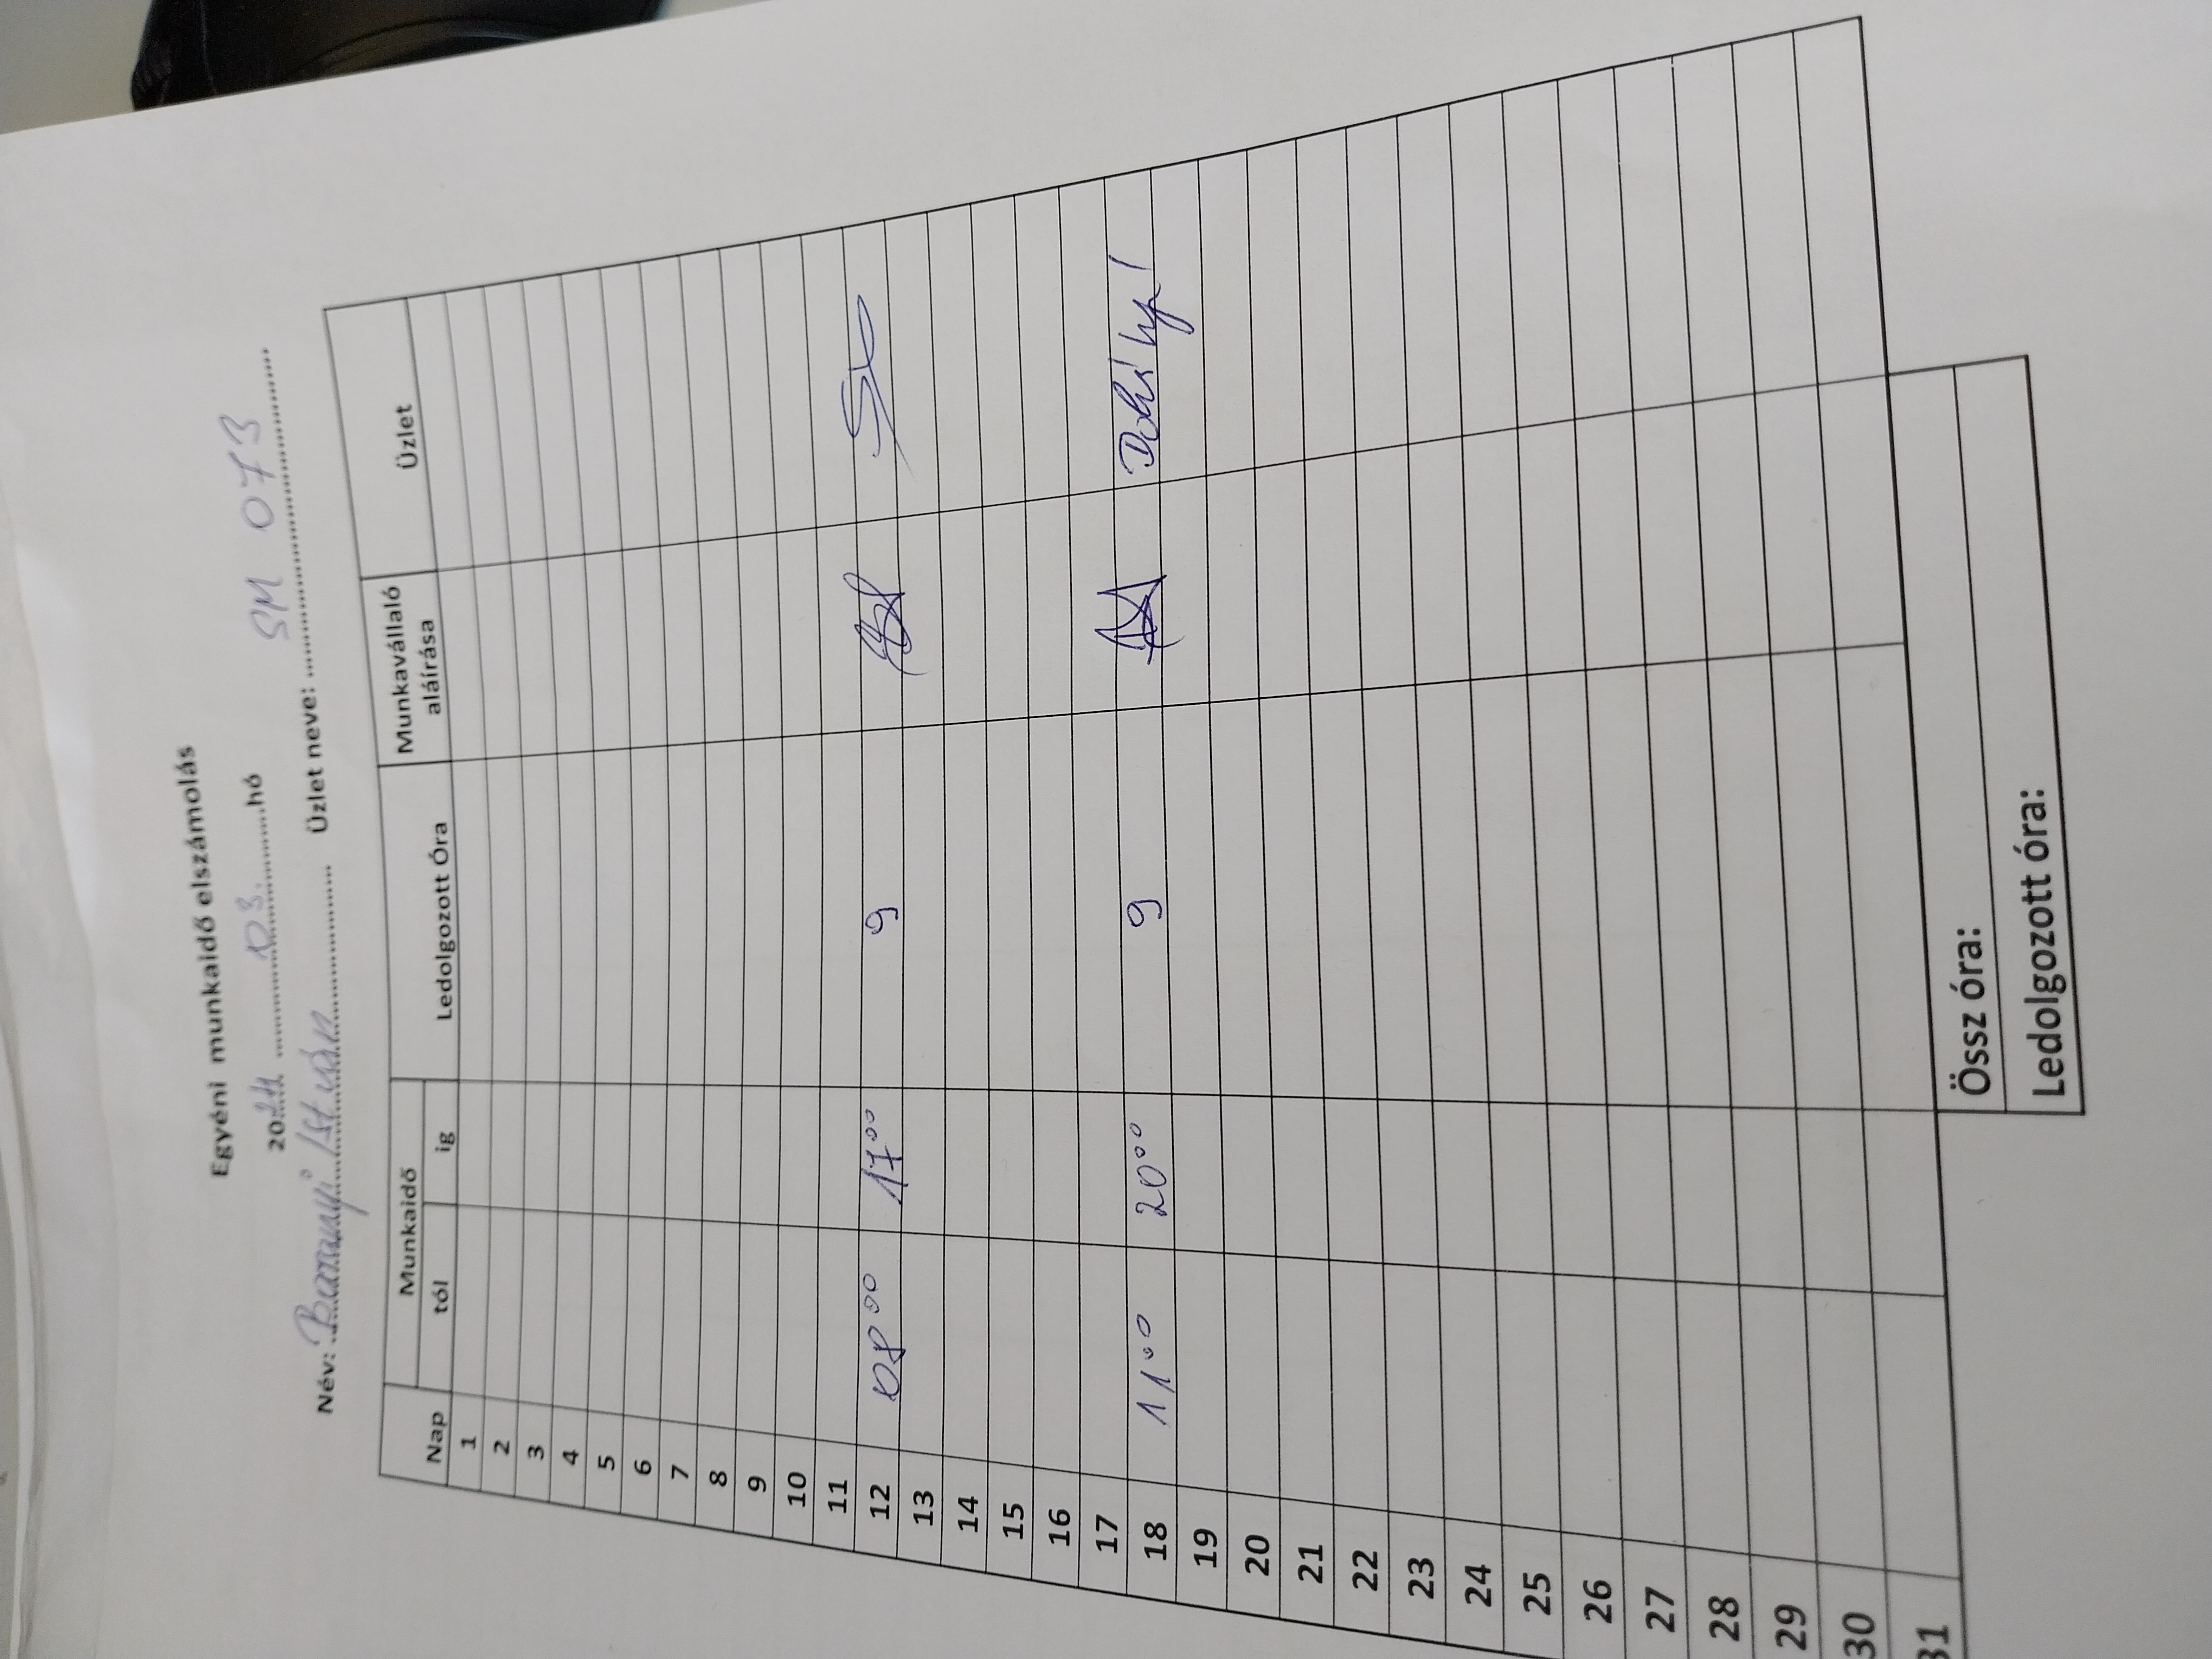 Egyéni munkaidő elszámolás
2024 03. hó
Név: Baranyi István Üzlet neve: SM 073
Nap Munkaidő Ledolgozott Óra Munkavállaló aláírása Üzlet
tól ig
1
2
3
4
5
6
7
8
9
10
11
12 08 00 17 00 9
13
14
15
16
17
18 11 00 20 00 9
19
20
21
22
23
24
25
26
27
28
29
30
31
Össz óra:
Ledolgozott óra: